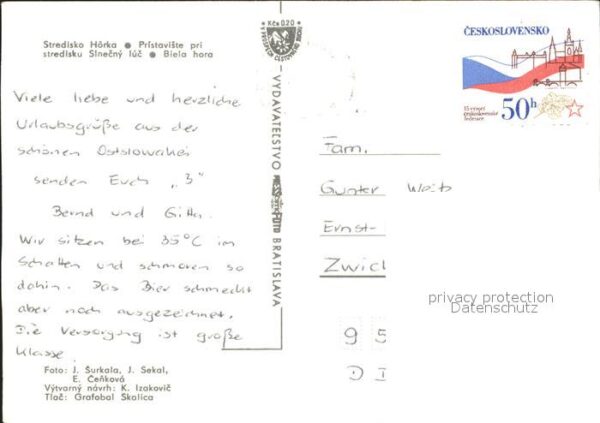 Stredisko Hôrka ● Prístavište pri
stredisku Slnečný lúč ● Biela hora
Kčs 0,20
Viele liebe und herzliche
Urlaubsgrüße aus der
schönen Ostslowakei
senden Euch „3"
Bernd und Gitta.
Wir sitzen bei 35°C im
Schatten und schmoren so
dahin. Das Bier schmeckt
aber noch ausgezeichnet.
Die Versorgung ist große
Klasse.
Foto: J. Šurkala, J. Sekal,
E. Čeňková
Výtvarný návrh: K. Izakovič
Tlač: Grafobal Skalica
VYDAVATEĽSTVO
BRATISLAVA
ČESKOSLOVENSKO
15. výročí
československé
federace
50h
Fam.
Gunter
Ernst-
Zwic
95
D
privacy protection
Datenschutz